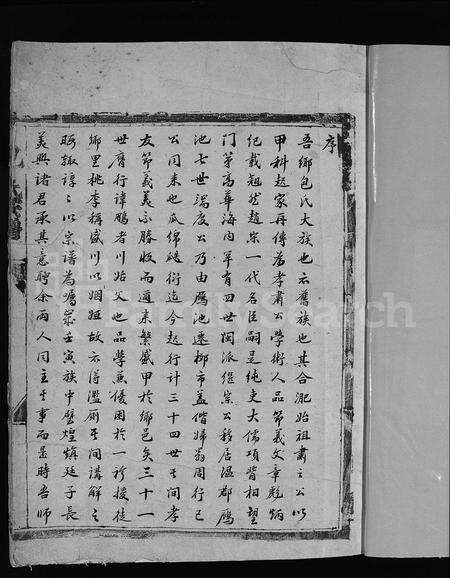 序
吾鄉包氏大族也亦舊族也其合肥始祖肅之公以
甲科起家再傳為孝肅公學術人品節義文章彪炳
紀載翹然趙宗一代名臣嗣是純吏大儒項背相望
門第高華海內罕有四世閩派從宗公移居溫郡鴈
池七世端度公乃由鴈池遷柳市蓋偕婦翁周行己
公同來也瓜綿瓞衍迄今起行計三十四世其間孝
友節義美不勝收而通來繁盛甲于鄉邑矣三十一
世膺行諱鵬者川始父也品學兼優困於一衿授徒
鄉里桃李稱盛川以姻婭故亦得濫廁其間講解之
暇輒諄諄以宗譜為囑歲壬寅族中歷煌鎮廷子長
美興諸君承其意聘余兩人同主其事而是時吾師
FamilySearch